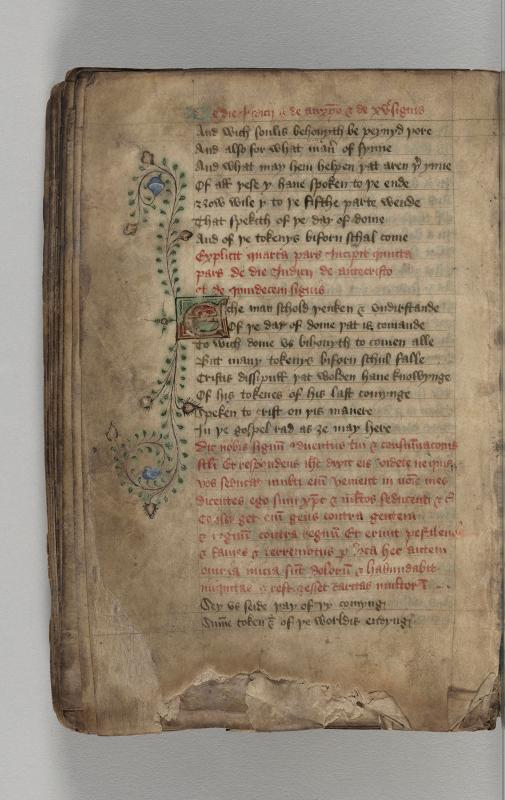 De die iudicij & de & de xv signis
And wich soulis behouyth be peynyd sore
And also for what maner of synne
And what may hem helpen þat aren þer ynne
Of all þese y haue spoken to þe ende
Now wile y to þe fifthe parte wende
That spekith of þe day of dome
And of þe tokenys biforn schal come
Explicit quarta pars Incipit quinta
pars de die Iudicii de antecristo
et de quindecem signis
Eche man schold þenken & vndirstande
Of þe day of dome þat is comande
To wich dome vs bihouyth to comen alle
But many tokenys biforn schul falle
Cristis discipull þat wolden haue knowlynge
Of his tokenes of his last comynge
Speken to crist on þis manere
In þe gospel rad as ȝe may here
Dic nobis signum aduentus tui & consummacionis
scli Et respondens ihc dixit eis videte ne quis
vos seducat multi enim venient in nomine meo
dicentes ego sum xpc & multos seducent & c
gens contra gentem
& regnum contra regnum Et erunt pestilencie
& fames & terremotus per loca hec autem
omnia inicia sunt dolorum & habundabit
iniquitas & refrigesset caritas multorum
Sey vs seide þay of þy comyng
Summe token & of þe worldis endyng